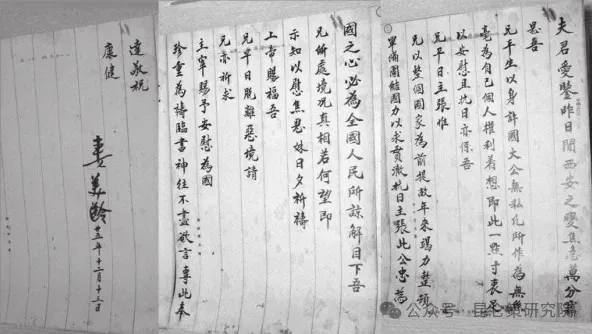 夫君愛鑒昨日聞西安之變焦急萬分竊
思吾
兄平生以身許國大公無私凡所作為無絲
毫為自己個人權利着想即此一點寸衷足
以安慰且抗日亦係吾
兄平日主張惟
兄以整個國家為前提故年來竭力整頓
軍備團結國力以求貫徹抗日主張此公忠為
國之心必為全國人民所諒解目下吾
兄所處境況真相若何望即
示知以慰焦思妹日夕祈禱
上帝賜福吾
兄早日脫離惡境請
兄亦祈求
主宰賜予安慰為國
珍重為禱臨書神往不盡欲言專此奉
達敬祝
康健
妻美齡 廿五年十二月十三日
公众号 · 昆仑策研究院